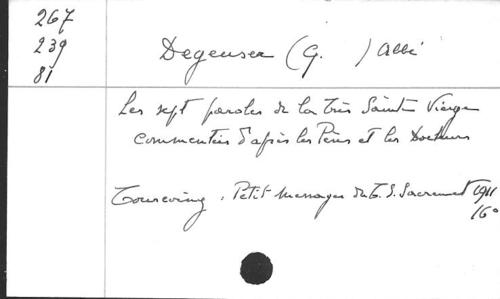 267
239
81
Degeuser (G. ) abbé
Les sept paroles de la Très Sainte Vierge
commentées d'après les Pères et les Docteurs
Tourcoing, Petit Messager du T. S. Sacrement 1911
16°